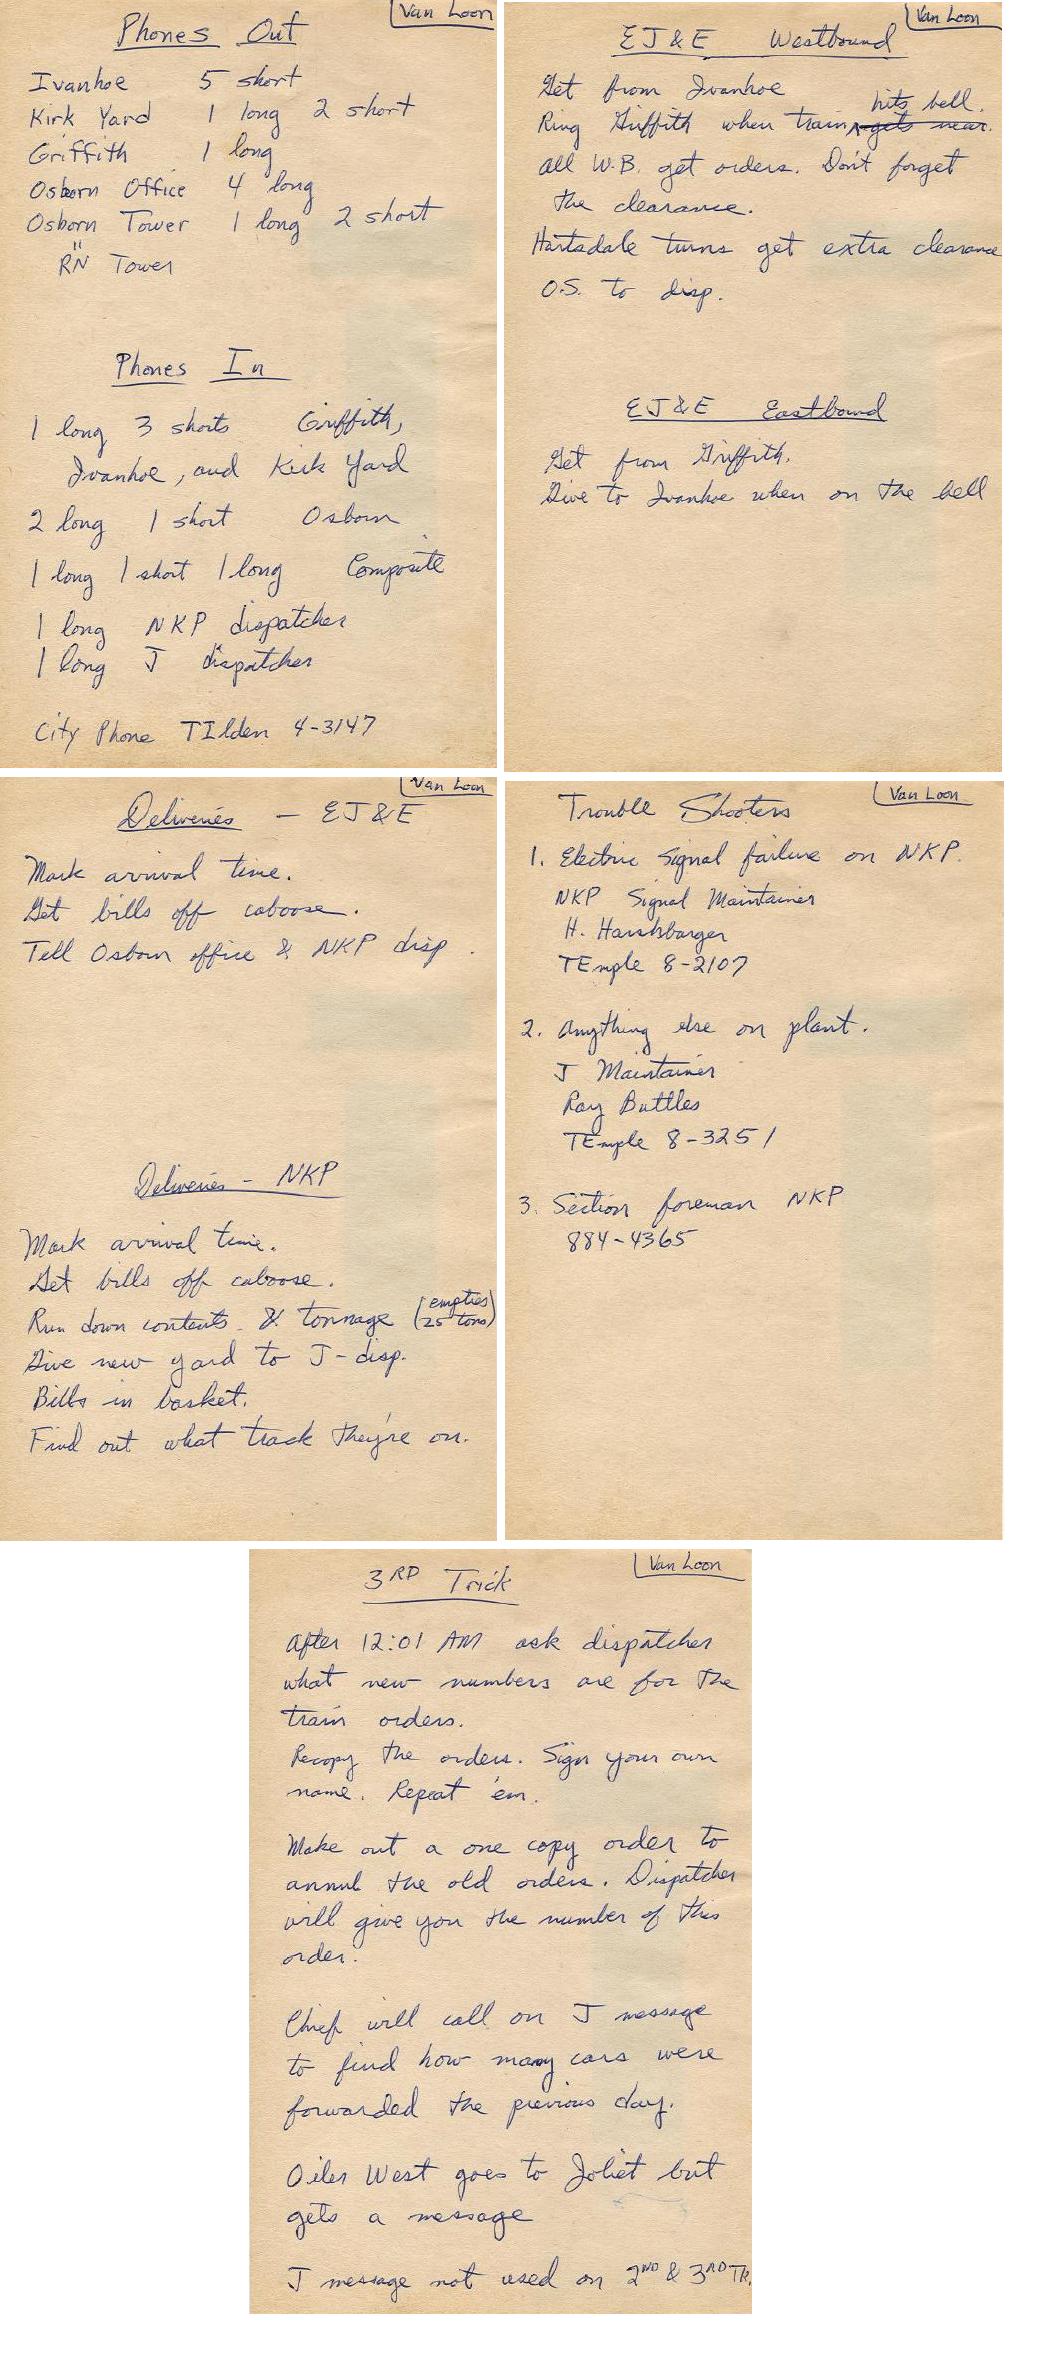 Van Loon
Phones Out
Ivanhoe 5 short
Kirk Yard 1 long 2 short
Griffith 1 long
Osborn Office 4 long
Osborn Tower 1 long 2 short
"
RN Tower
Phones In
1 long 3 shorts Griffith,
Ivanhoe, and Kirk Yard
2 long 1 short Osborn
1 long 1 short 1 long Composite
1 long NKP dispatcher
1 long J dispatcher
City Phone TIlden 4-3147
Van Loon
EJ&E Westbound
Get from Ivanhoe
hits bell.
Ring Griffith when train gets near.
All W.B. get orders. Don't forget
the clearance.
Hartsdale turns get extra clearance
O.S. to disp.
EJ&E Eastbound
Get from Griffith.
Give to Ivanhoe when on the bell
Van Loon
Deliveries - EJ&E
Mark arrival time.
Get bills off caboose.
Tell Osborn office & NKP disp.
Deliveries - NKP
Mark arrival time.
Get bills off caboose.
Run down contents & tonnage (empties 25 tons)
Give new yard to J-disp.
Bills in basket.
Find out what track they're on.
Van Loon
Trouble Shooters
1. Electric Signal failure on NKP.
NKP Signal Maintainer
H. Harshbarger
TEmple 8-2107
2. Anything else on plant.
J Maintainer
Ray Buttles
TEmple 8-3251
3. Section foreman NKP
884-4365
Van Loon
3RD Trick
After 12:01 AM ask dispatcher
what new numbers are for the
train orders.
Recopy the orders. Sign your own
name. Repeat 'em.
Make out a one copy order to
annul the old orders. Dispatcher
will give you the number of this
order.
Chief will call on J message
to find how many cars were
forwarded the previous day.
Oiler West goes to Joliet but
gets a message
J message not used on 2ND & 3RD TR.